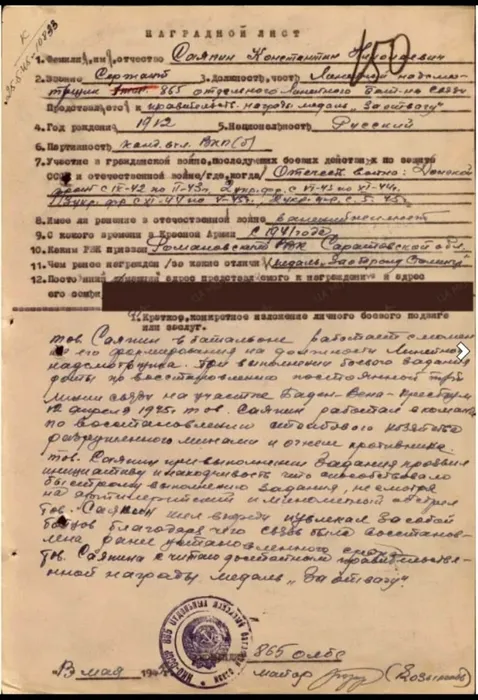 НАГРАДНОЙ ЛИСТ
1. Фамилия, имя, отчество Саяпин Константин
2. Звание Сержант 3. Должность, часть Линейный надсмо-
трщик 865 отдельного линейного бат-на связи
Представляется к правительств. награде медаль "За отвагу"
4. Год рождения 1912 5. Национальность Русский
6. Партийность канд. вкп(б)
7. Участие в гражданской войне, последующих боевых действиях по защите
СССР и отечественной войне /где, когда/ Отечеств. война: Донской
фронт с IX-42 по II-43г.
8. Имеет ли ранение в отечественной войне
9. С какого времени в Красной Армии с 1941 года
10. Каким РВК призван Романовским РВК Саратовской обл.
11. Чем ранее награжден /за какие отличия/ медаль За оборону Сталингр
12. Постоянный домашний адрес представляемого к награждению и адрес
его семьи
1. Краткое, конкретное изложение личного боевого подвига
или заслуг.
тов. Саяпин в батальоне работает с момен
та его формирования на должности линейного
надсмотрщика. При выполнении боевого задания
роты по восстановлению постоянной
линии связи на участке Баден-Вена-Пресбург
12 апреля 1945г. тов. Саяпин работал
по восстановлению столбового хозяйства
разрушенного минами и огнем противника.
тов. Саяпин при выполнении задания проявил
инициативу и находчивость что способствовало
быстрому выполнению задания, не смотря
на артиллерийский и минометный обстрел
тов. Саяпин шел вперед и увлекал за собой
бойцов благодаря чего связь была восстанов-
лена ранее установленного срока
тов. Саяпина считаю достойным правительстве-
нной награды медаль "За отвагу".
865 олбс
13 мая майор